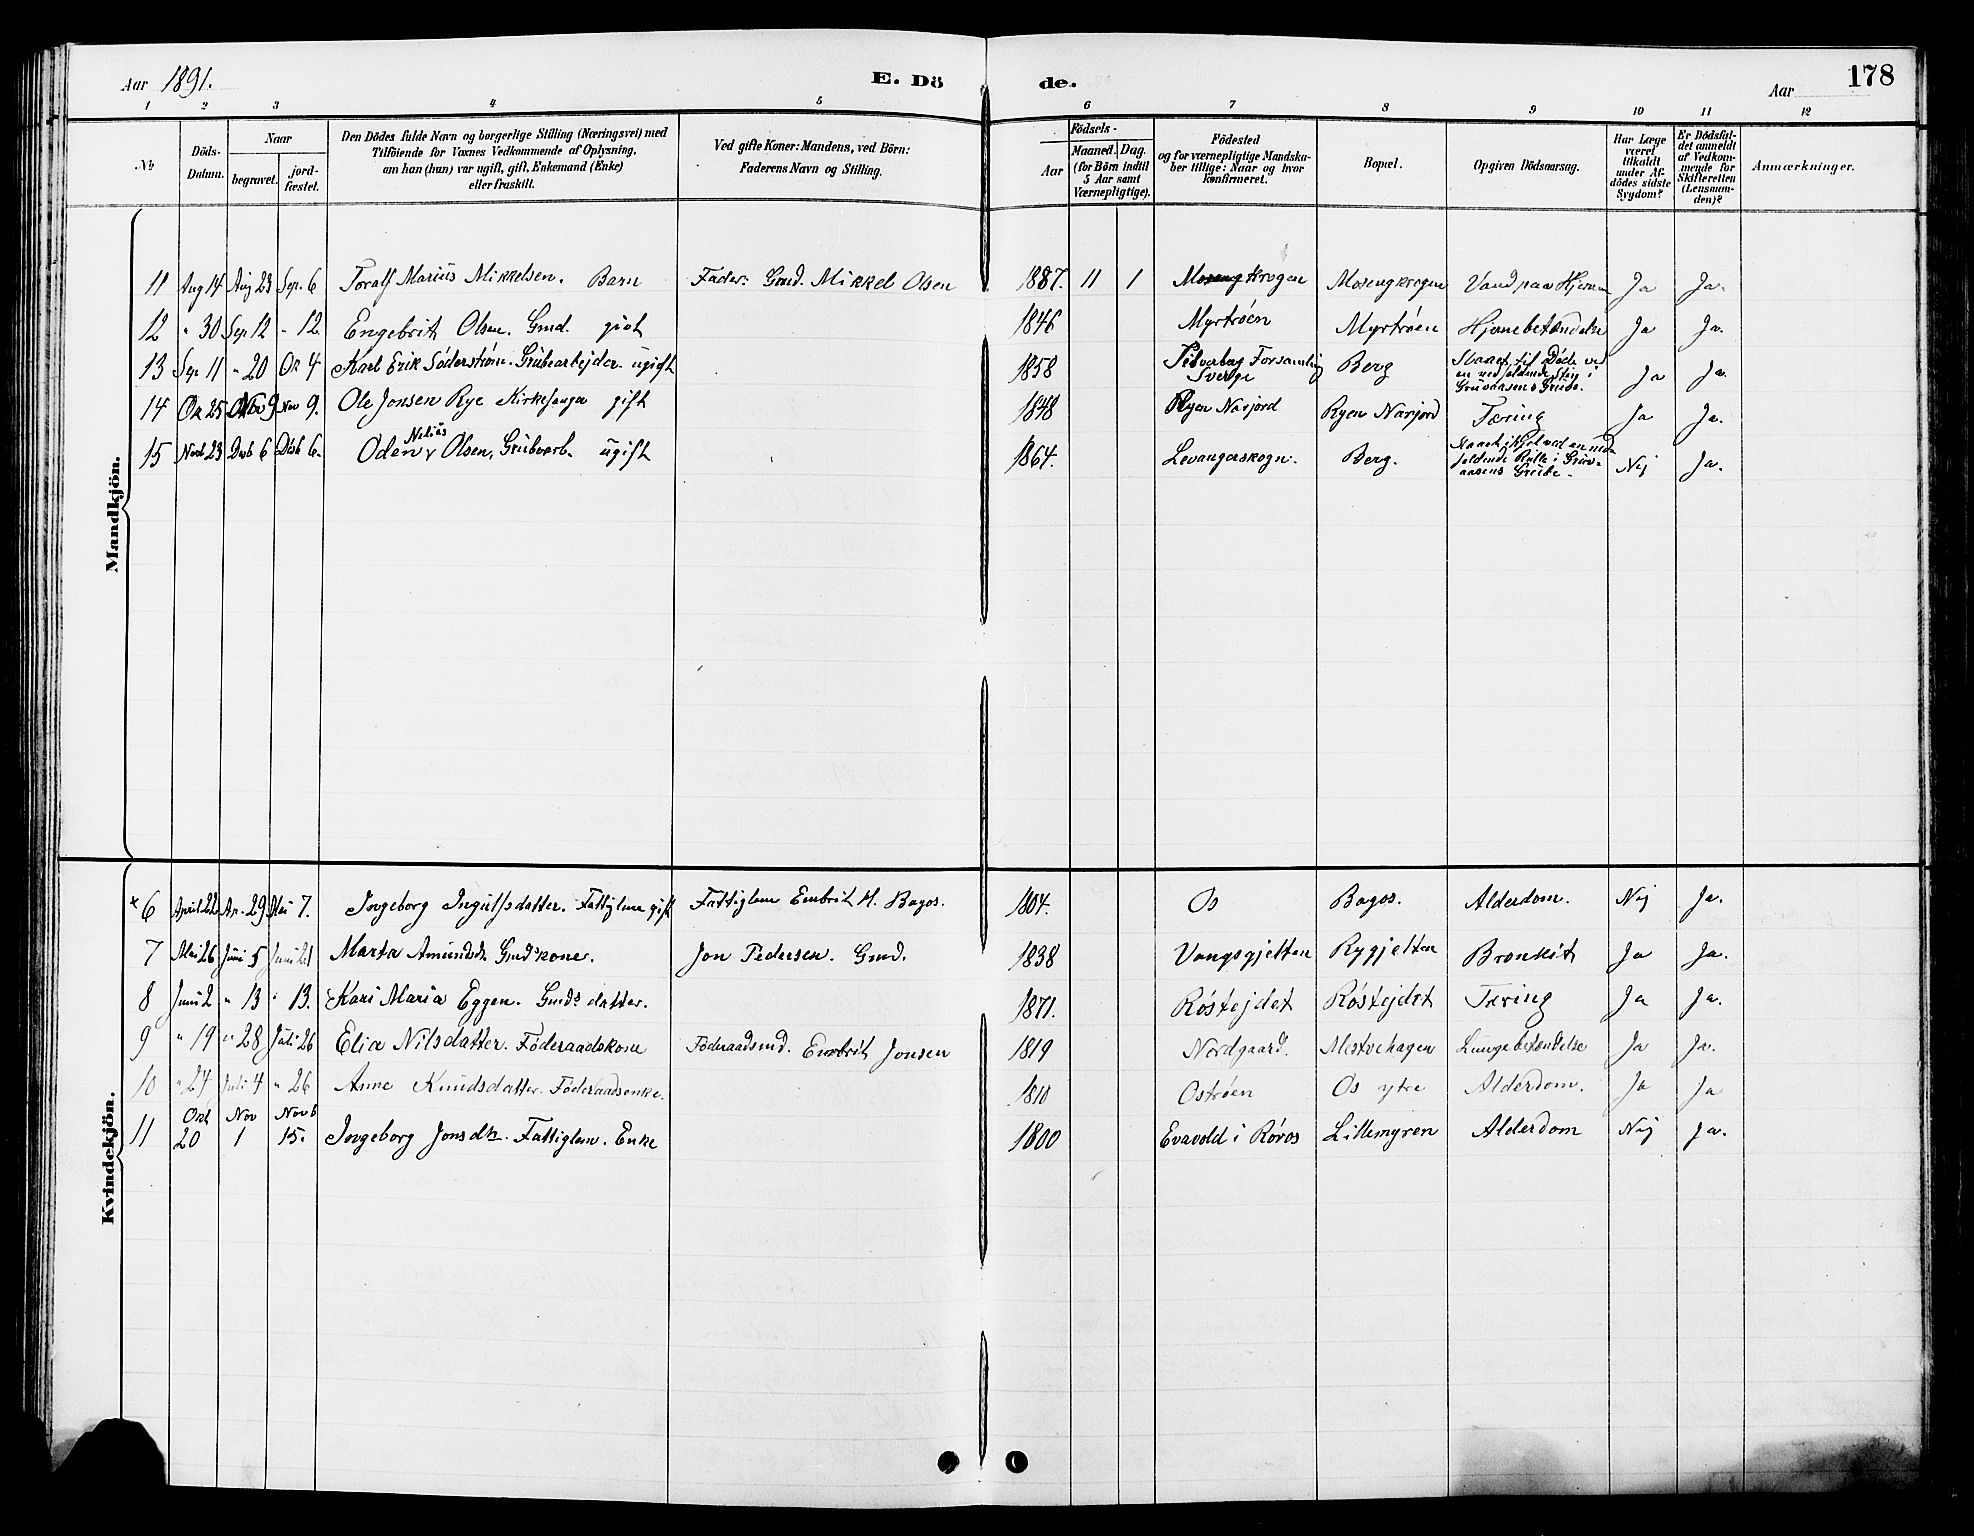 Aar 1891. E. Dö de. Aar 178
1 2 3 4 5 6 7 8 9 10 11 12
No
Döds-Datum.
Naar
begravet. jord-fæstet.
Den Dödes fulde Navn og borgerlige Stilling (Næringsvei) med
Tilföiende for Voxnes Vedkommende af Oplysning,
om han (hun) var ugift, gift, Enkemand (Enke)
eller fraskilt.
Ved gifte Koner: Mandens, ved Börn:
Faderens Navn og Stilling.
Födsels-
Aar
Maaned. Dag.
(for Börn indtil
5 Aar samt
Værnepligtige).
Födested
og for værnepligtige Mandska-
ber tillige: Naar og hvor
konfirmeret.
Bopæl.
Opgiven Dödsaarsag.
Har Læge
været
tilkaldt
under Af-
dödes sidste
Sygdom?
Er Dödsfal-
det anmeldt
af Vedkom-
mende for
Skifteretten
(Lensman-
den)?
Anmærkninger.
Mandkjön.
11 Aug 14 Aug 23 Sep. 6 Toralf Marius Mikkelsen. Barn Fader: Gmd. Mikkel Olsen 1887. 11 1 Mosengkrogen Mosengkrogen Vand paa Hjernen Ja Ja.
12 " 30 Sep 12 " 12. Engebrit Olsen. Gmd. gift 1846 Myrtrøen Myrtrøen Hjernebetændelse Ja Ja.
13 Sep 11 " 20 Ok 4 Karl Erik Söderstrøm. Grubearbejder ugift 1858 Silverberg Forsamling Sverge Berg Slaaet til Døde ved en nedfaldende Sten i Gruvaasens Grube. Ja Ja.
14 Ok 25 Nov 9 Nov 9. Ole Jonsen Rye Kirkesanger gift 1848 Ryen Narjord Ryen Narjord Tæring Ja Ja.
15 Novb 23 Desb 6 Desb 6. Oden Nelius Olsen, Grubearb. ugift 1864. Levangerskogn. Berg. Slaaet ihjel ved en ned faldende Rulle i Gruvaasens Grube. Nej Ja.
Kvindekjön.
× 6 April 22 Ap. 29 Mai 7. Ingeborg Ingulfsdatter. Fattiglem gift Fattiglem Embrit H. Bagos. 1804. Os Bagos. Alderdom. Nej Ja.
7 Mai 26 Juni 5 Juni 21 Marta Amundsd. Gmdskone. Jon Pedersen. Gmd. 1838 Vangsgjelten Rygjelten Bronkit Ja Ja.
8 Juni 2 " 13 " 13. Kari Maria Eggen. Gmds datter. 1871. Røstejdet Røstejdet Tæring Ja Ja.
9 " 19 " 28 Juli 26 Elia Nilsdatter. Föderaadskone Föderaadsmd. Embrit Jonsen 1819 Nordgaard. Mestvehagen Lungebetændelse Ja Ja.
10 " 24 Juli 4 " 26 Anne Knudsdatter. Föderaadsenke. 1810 Ostrøen Os ytre Alderdom. Ja Ja
11 Okt 20 Nov 1 Novb 15. Ingeborg Jonsdtr. Fattiglem. Enke 1800 Evavold i Røros Lillemyren Alderdom Nej Ja.